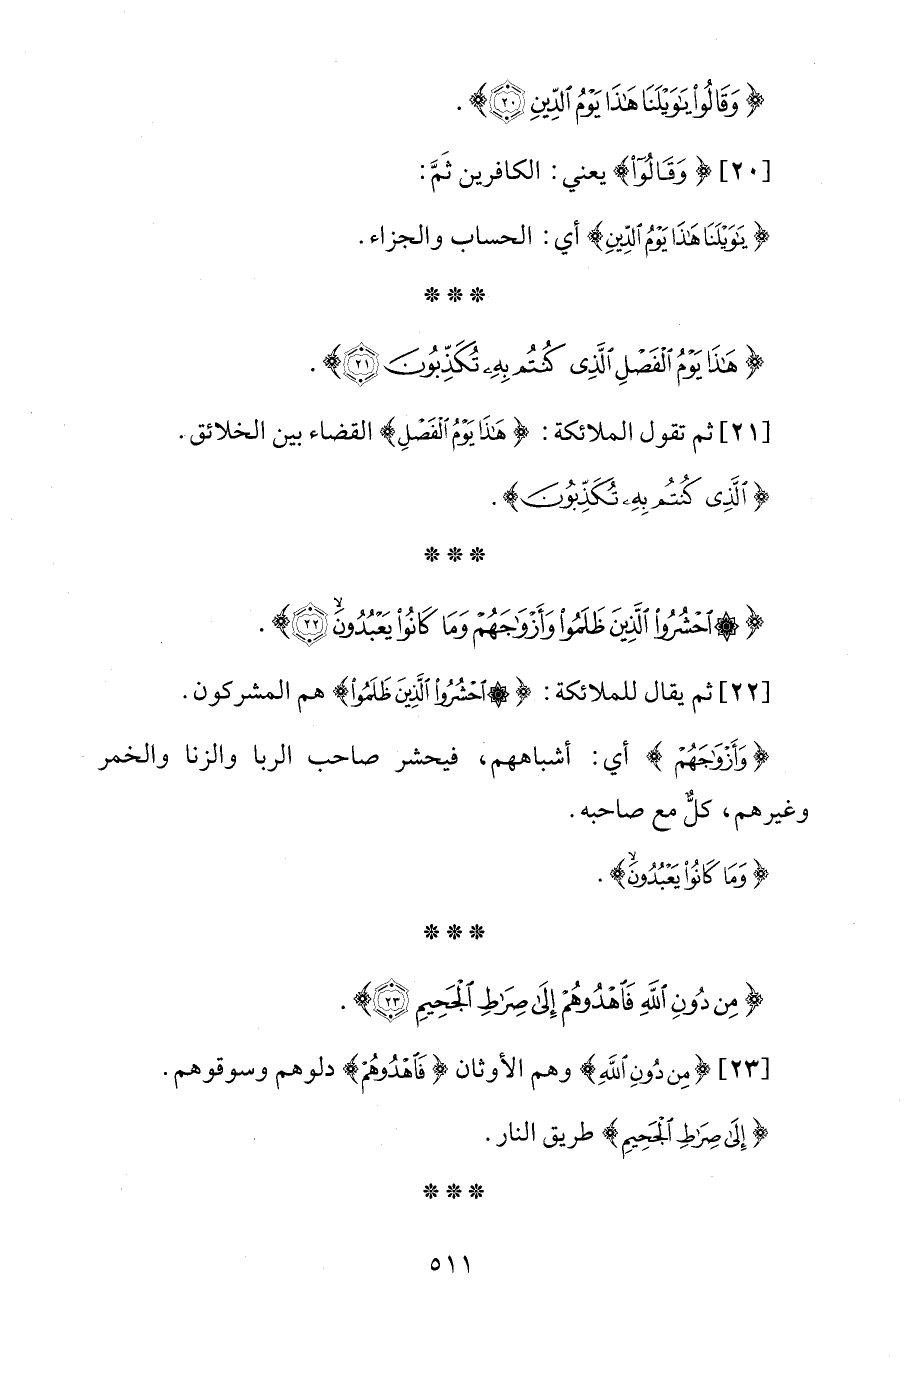 ﴿ وَقَالُواْ يَٰوَيْلَنَا هَٰذَا يَوْمُ ٱلدِّينِ ٢٠ ﴾ .
[٢٠] ﴿ وَقَالُوٓاْ ﴾ يعني: الكافرين ثَمَّ:
﴿ يَٰوَيْلَنَا هَٰذَا يَوْمُ ٱلدِّينِ ﴾ أي: الحساب والجزاء.
* * *
﴿ هَٰذَا يَوْمُ ٱلْفَصْلِ ٱلَّذِى كُنتُم بِهِۦ تُكَذِّبُونَ ٢١ ﴾ .
[٢١] ثم تقول الملائكة: ﴿ هَٰذَا يَوْمُ ٱلْفَصْلِ ﴾ القضاء بين الخلائق.
﴿ ٱلَّذِى كُنتُم بِهِۦ تُكَذِّبُونَ ﴾ .
* * *
﴿ ۞ ٱحْشُرُواْ ٱلَّذِينَ ظَلَمُواْ وَأَزْوَٰجَهُمْ وَمَا كَانُواْ يَعْبُدُونَۙ ٢٢ ﴾ .
[٢٢] ثم يقال للملائكة: ﴿ ۞ ٱحْشُرُواْ ٱلَّذِينَ ظَلَمُواْ ﴾ هم المشركون.
﴿ وَأَزْوَٰجَهُمْ ﴾ أي: أشباههم، فيحشر صاحب الربا والزنا والخمر
وغيرهم، كلٌّ مع صاحبه.
﴿ وَمَا كَانُواْ يَعْبُدُونَۙ ﴾ .
* * *
﴿ مِن دُونِ ٱللَّهِ فَٱهْدُوهُمْ إِلَىٰ صِرَٰطِ ٱلْجَحِيمِ ٢٣ ﴾ .
[٢٣] ﴿ مِن دُونِ ٱللَّهِ ﴾ وهم الأوثان ﴿ فَٱهْدُوهُمْ ﴾ دلوهم وسوقوهم.
﴿ إِلَىٰ صِرَٰطِ ٱلْجَحِيمِ ﴾ طريق النار.
* * *
٥١١